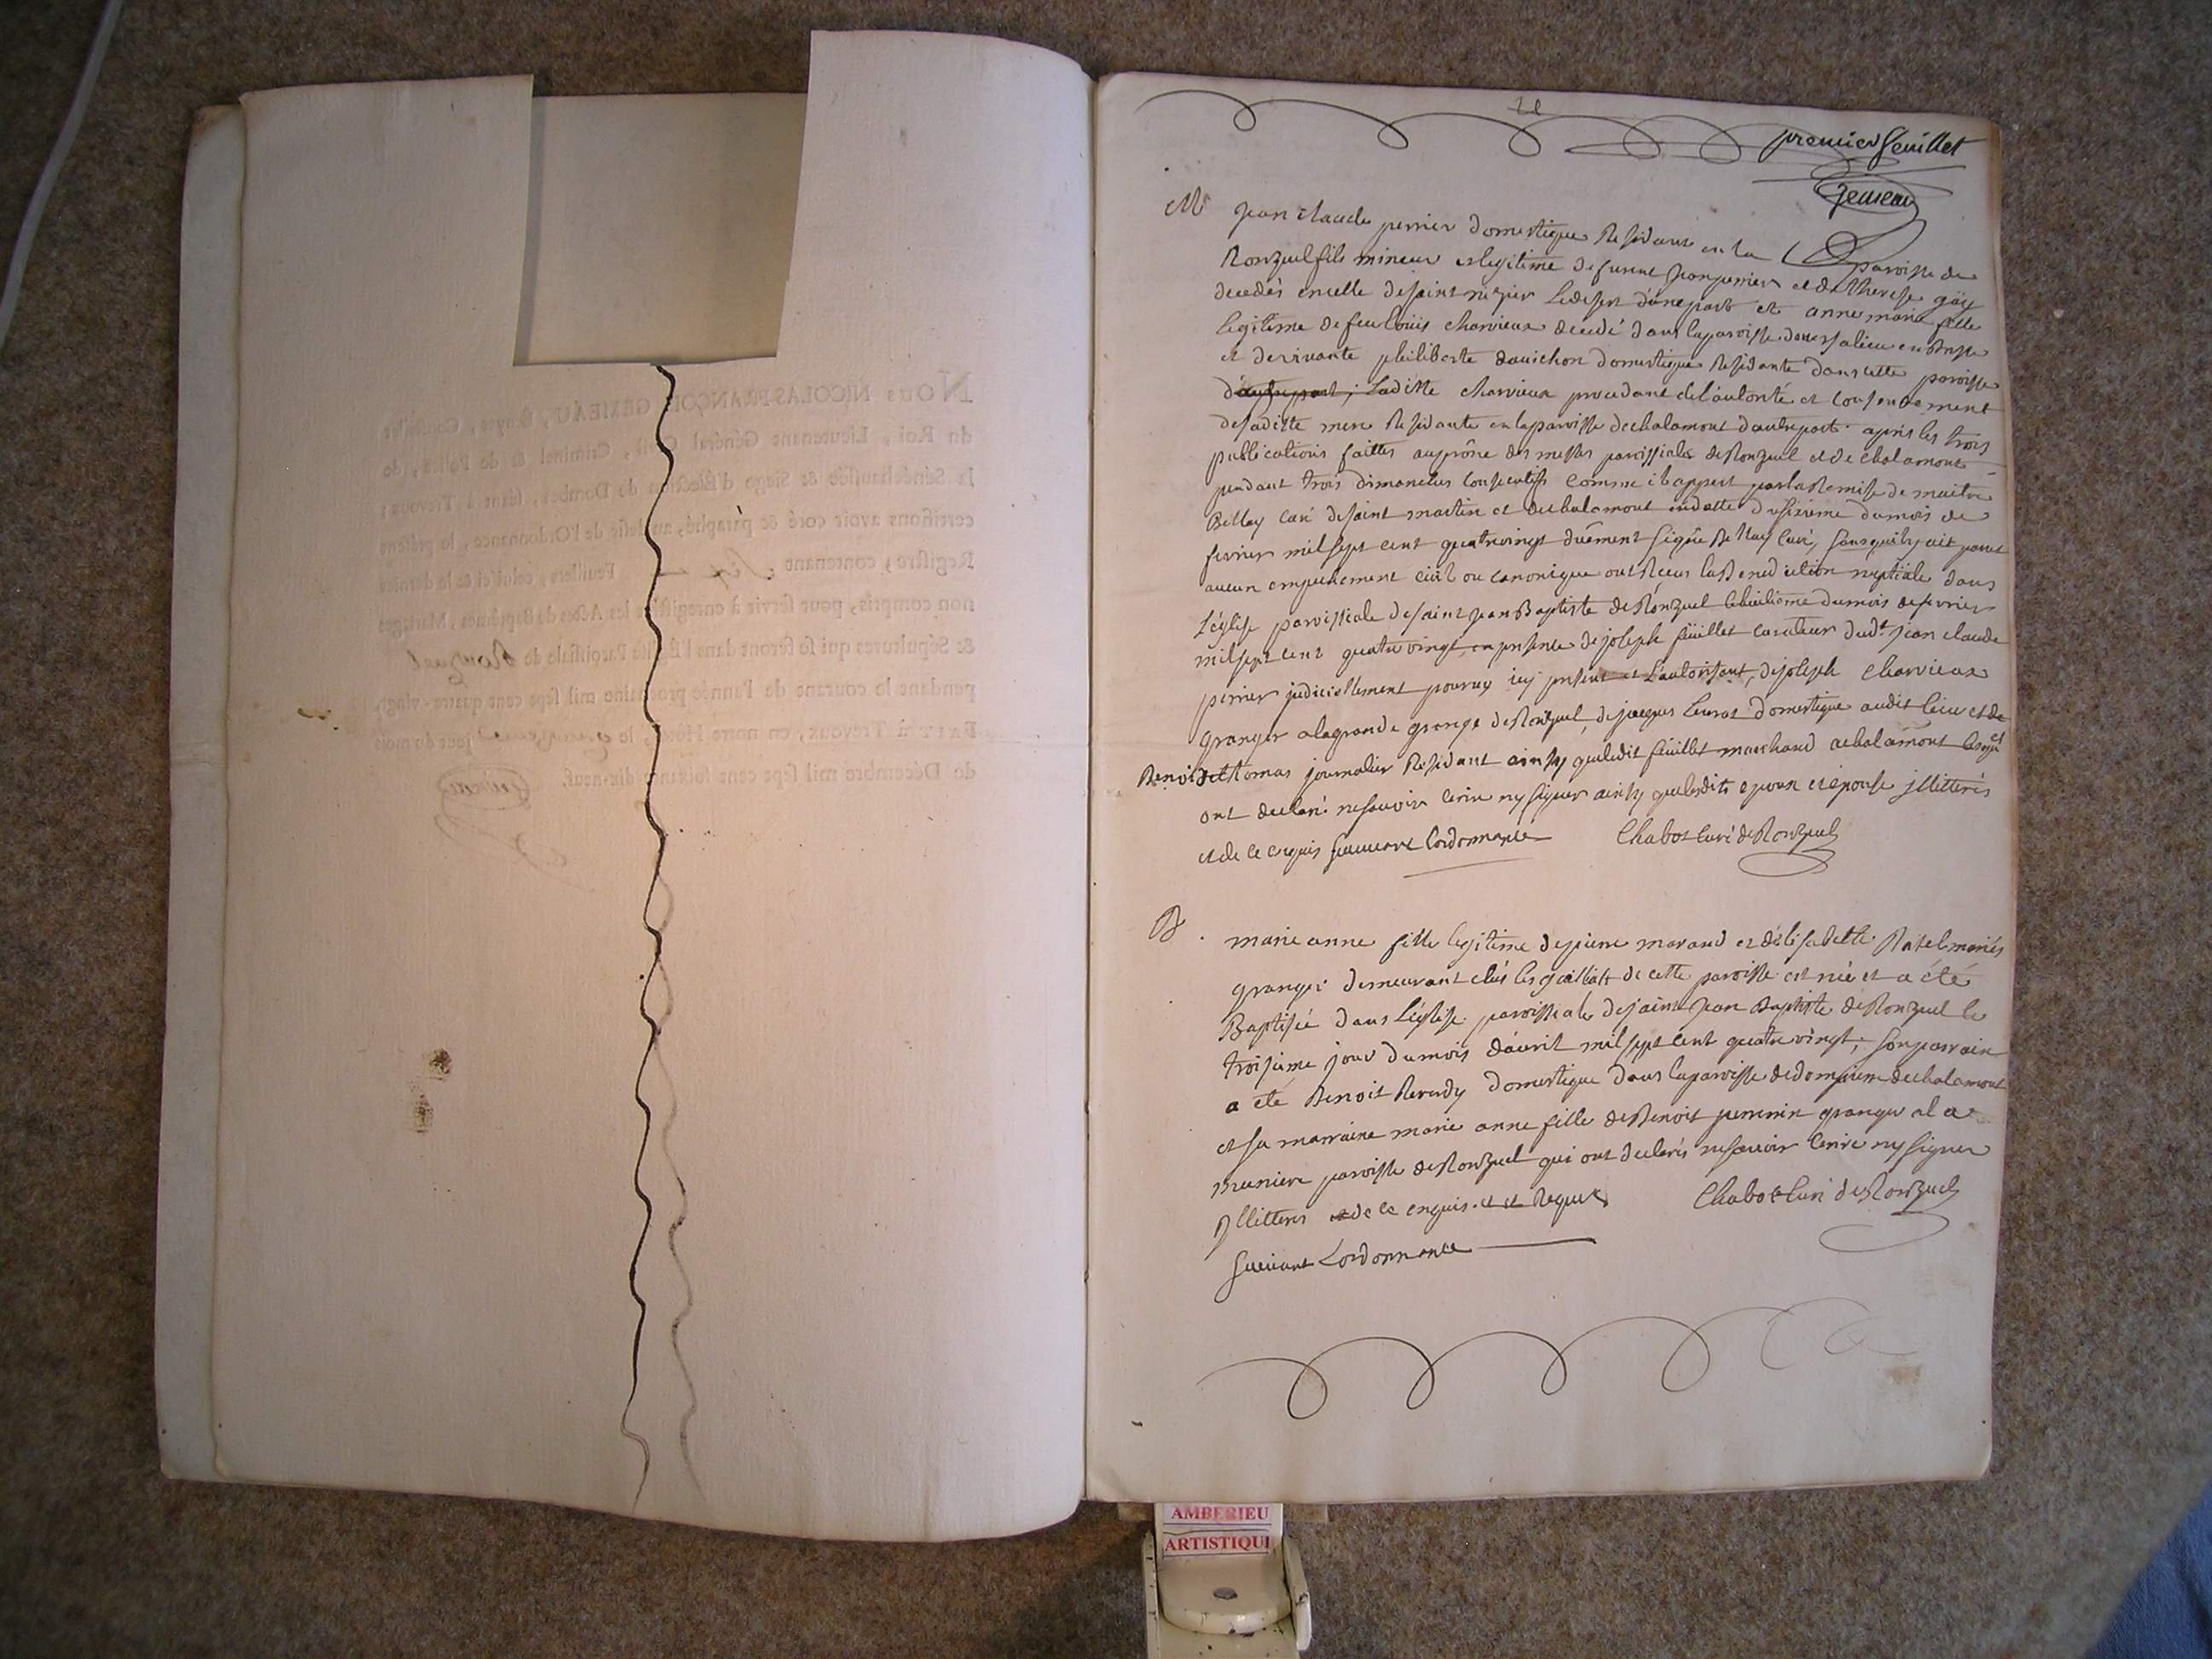 Nous NICOLAS-FRANÇOIS GEMEAU, Ecuyer, Conseiller
du Roi, Lieutenant Général Civil, Criminel & de Police, de
la Sénéchaussée & Siege d'Election de Dombes, séant à Trevoux;
certifions avoir coté & paraphé, au desir de l'Ordonnance, le présent
Registre, contenant six Feuillets, celui-ci & le dernier
non compris, pour servir à enregistrer les Actes de Baptêmes, Mariages
& Sépultures qui se feront dans l'Eglise Paroissiale de Ronzuel
pendant le courant de l'année prochaine mil sept cent quatre-vingt,
FAIT à Trevoux, en notre Hôtel, le quinzieme jour du mois
de Décembre mil sept cent soixante-dix-neuf.
Gemeau
premier feuillet
Gemeau
M jean claude perrier domestique Residant en la paroisse de
Ronzuel fils mineur et legitime de funt jean perrier et de therese gäy
decedés en celle de saint nizier le desert d'une part et anne marie fille
legitime de feu loüis charvieux decedé dans la paroisse de versalieu en Bresse
et de vivante philiberte dauichon domestique Residante dans cette paroisse
d'autre part; Laditte charvieux procedant de l'autorité et consentement
de saditte mere Residante en la paroisse de chalamont d'autre part. après les trois
publications faittes au prône des messes paroissiales de Ronzuel et de chalamont
pendant trois dimanches consecutifs comme il appert par la Remise de maitre
Bellay curé de saint martin et de chalamont en datte du sixieme du mois de
fevrier mil sept cent quatre vingt düement signée Bellay curé, sans qu'il y ait parut
aucun empechement civil ou canonique ont Reçus la Benediction nuptiale dans
L'église paroissiale de saint jean Baptiste de Ronzuel le huitieme du mois de fevrier
mil sept cent quatre vingt en presence de joseph füillet curateur dud.t jean claude
perrier judiciellement pourvu icy present et L'autorisant, de joseph charvieux
granger a la grande grange de Ronzuel, de jacques Leuras domestique audit lieu et de
Benoit thomas journalier Residant ainsy que ledit füillet marchand a chalamont lesquels
ont declaré ne sçavoir ecrire ny signer ainsy que lesdits epoux et épouse jllitterés
et de ce enquis suivant L'ordonnance Chabot curé de Ronzuel
B. marie anne fille legitime de pierre marand et d'elisabette Ratel mariés
granger demeurant chés les de cette paroisse est née et a été
Baptisée dans L'église paroissiale de saint jean Baptiste de Ronzuel le
troisieme jour du mois d'avril mil sept cent quatre vingt; son parrain
a ete Benoit Reverdy domestique dans la paroisse de dompierre de chalamont
et sa marraine marie anne fille de Benoit perrenin granger a la
muniere paroisse de Ronzuel qui ont declarés ne sçavoir ecrire ny signer
jllitteres et de ce enquis et et Requis Chabot curé de Ronzuel
suivant L'ordonnance
AMBERIEU
ARTISTIQUE